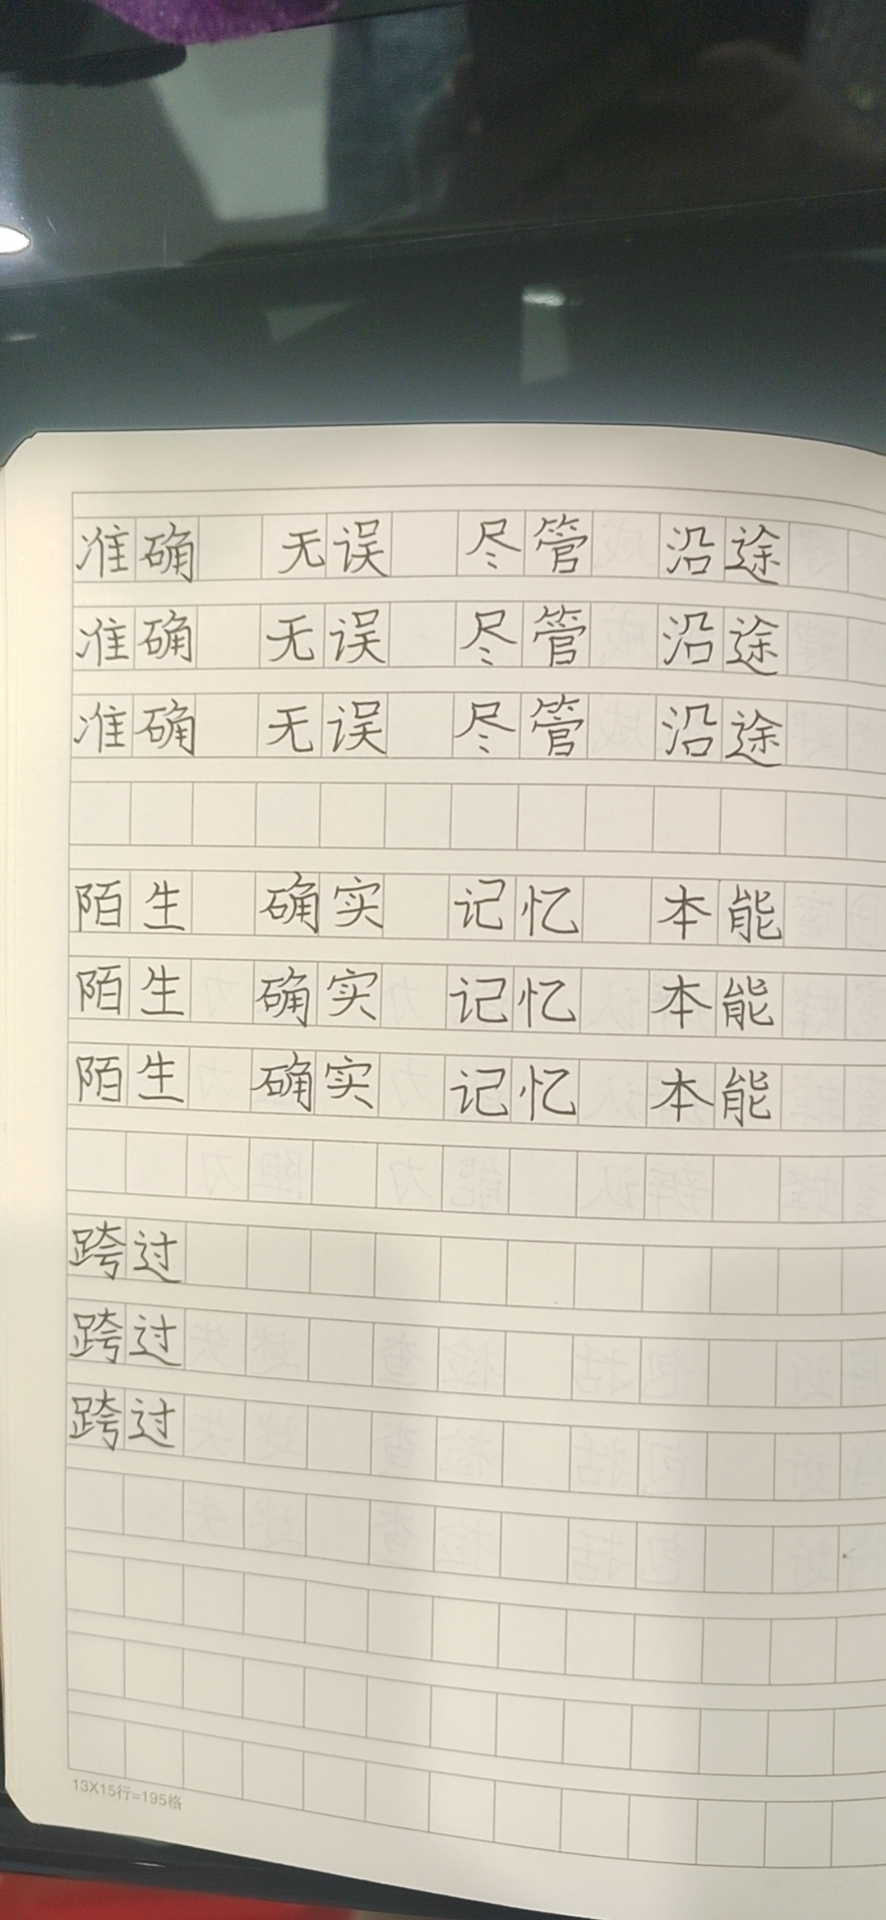 准确 无误 尽管 沿途
准确 无误 尽管 沿途
准确 无误 尽管 沿途
陌生 确实 记忆 本能
陌生 确实 记忆 本能
陌生 确实 记忆 本能
跨过
跨过
跨过
13X15行=195格